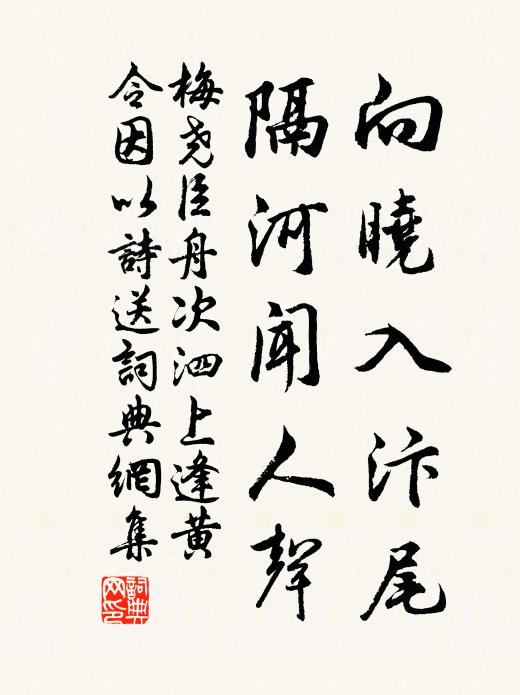 向曉入汴尾
隔河聞人聲
梅堯臣舟次泗上逢黃
令因以詩送詞典網集
詞典網印